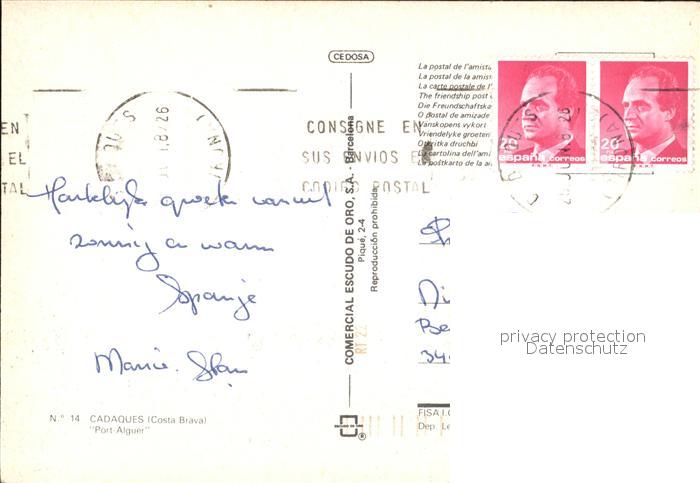 CEDOSA
La postal de l'amist
La postal de la amis
La carte postale de l'
The friendship post
Die Freundschaftska
O postal de amizade
Vanskopens vykort
Vriendelyke groeten
Otkritka druchbi
La cartolina dell'ami
La poŝtkarto de la a
20 20
españa correos españa correos
F.N.M.T. F.N.M.T.
EN CONSIGNE EN
EL SUS ENVIOS EL
TAL CODIGO POSTAL
Hartelijke groeten vanuit
zonnig en warm
Spanje
Marie.
COMERCIAL ESCUDO DE ORO, S.A. - Barcelona
Piqué, 2-4
Reproducción prohibida
Be
34
privacy protection
Datenschutz
N.º 14 CADAQUES (Costa Brava)
"Port-Alguer"
ESCUDO DE ORO
®
FISA I.G
Dep. Le